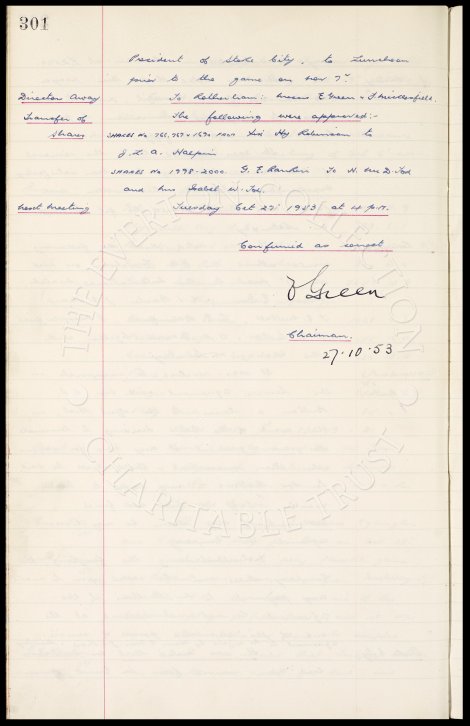 301
President of Stoke City, to Luncheon
prior to the game on Nov 7th.
Director Away To Rotherham: Messrs E Green &
Transfer of The following were approved:-
Shares SHARES No 766, 767 & 1670 FROM Hy Robinson to
J. L. A. Halpin
SHARES No 1998-2000. G. E. Rankin To N. McD. Tod
and Mrs Isabel W. Tod.
Next Meeting Tuesday Oct 27th 1953 at 4 P.M.
Confirmed as correct
Green
Chairman.
27.10.53
THE EVERTON COLLECTION
CHARITABLE TRUST